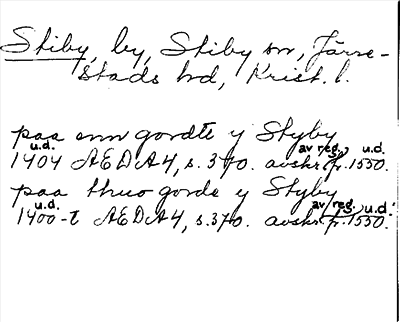 Stiby, by, Stiby sn, Järre-
stads hd, Krist. l.
paa enn gordtt y Styby
u.d. av reg., u.d.
1404 AEDA4, s. 370. avskr. fr. 1550.
paa thuo gorde y Styby
u.d. av reg., u.d.
1400-t AEDA4, s. 370. avskr. fr. 1550.